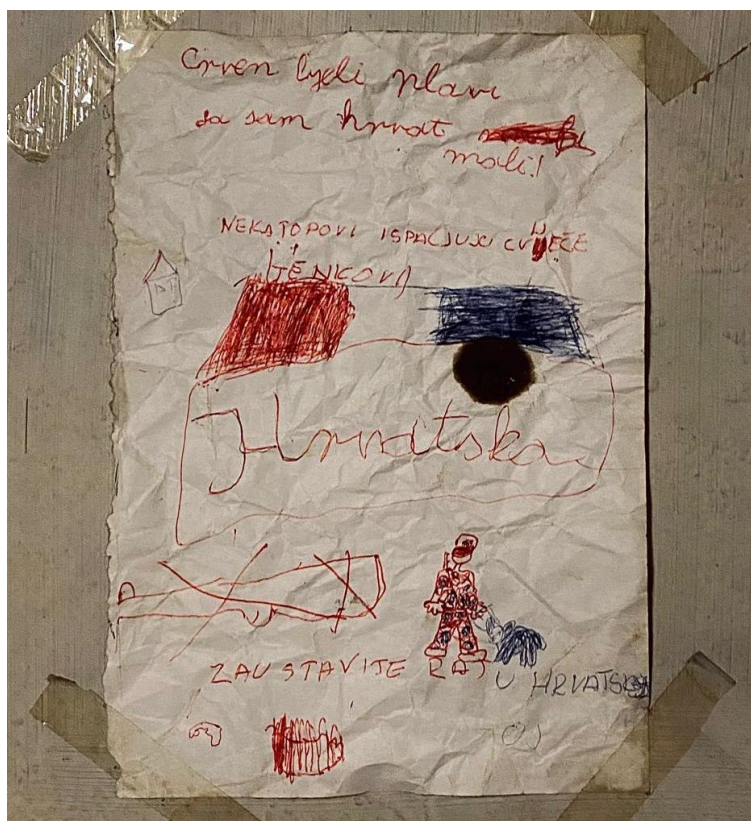 Crven bjeli plavi
da sam hrvat
mali!
NEKA TOPOVI ISPALJUJU CVIJEČE
TENKOVI
Hrvatska
ZAUSTAVITE RAT U HRVATSKOJ